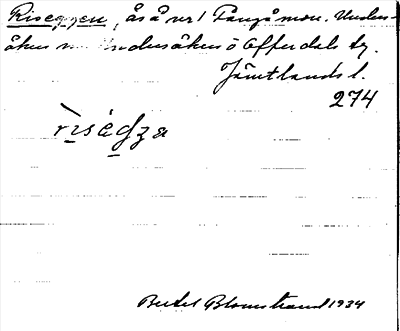 Riseggen, ås å vr/ Tångåmon. Unders-
åkers o. Undersåkers o Offerdals tg.
Jämtlands l.
274
rìségza
Bertil Blomstrand 1934